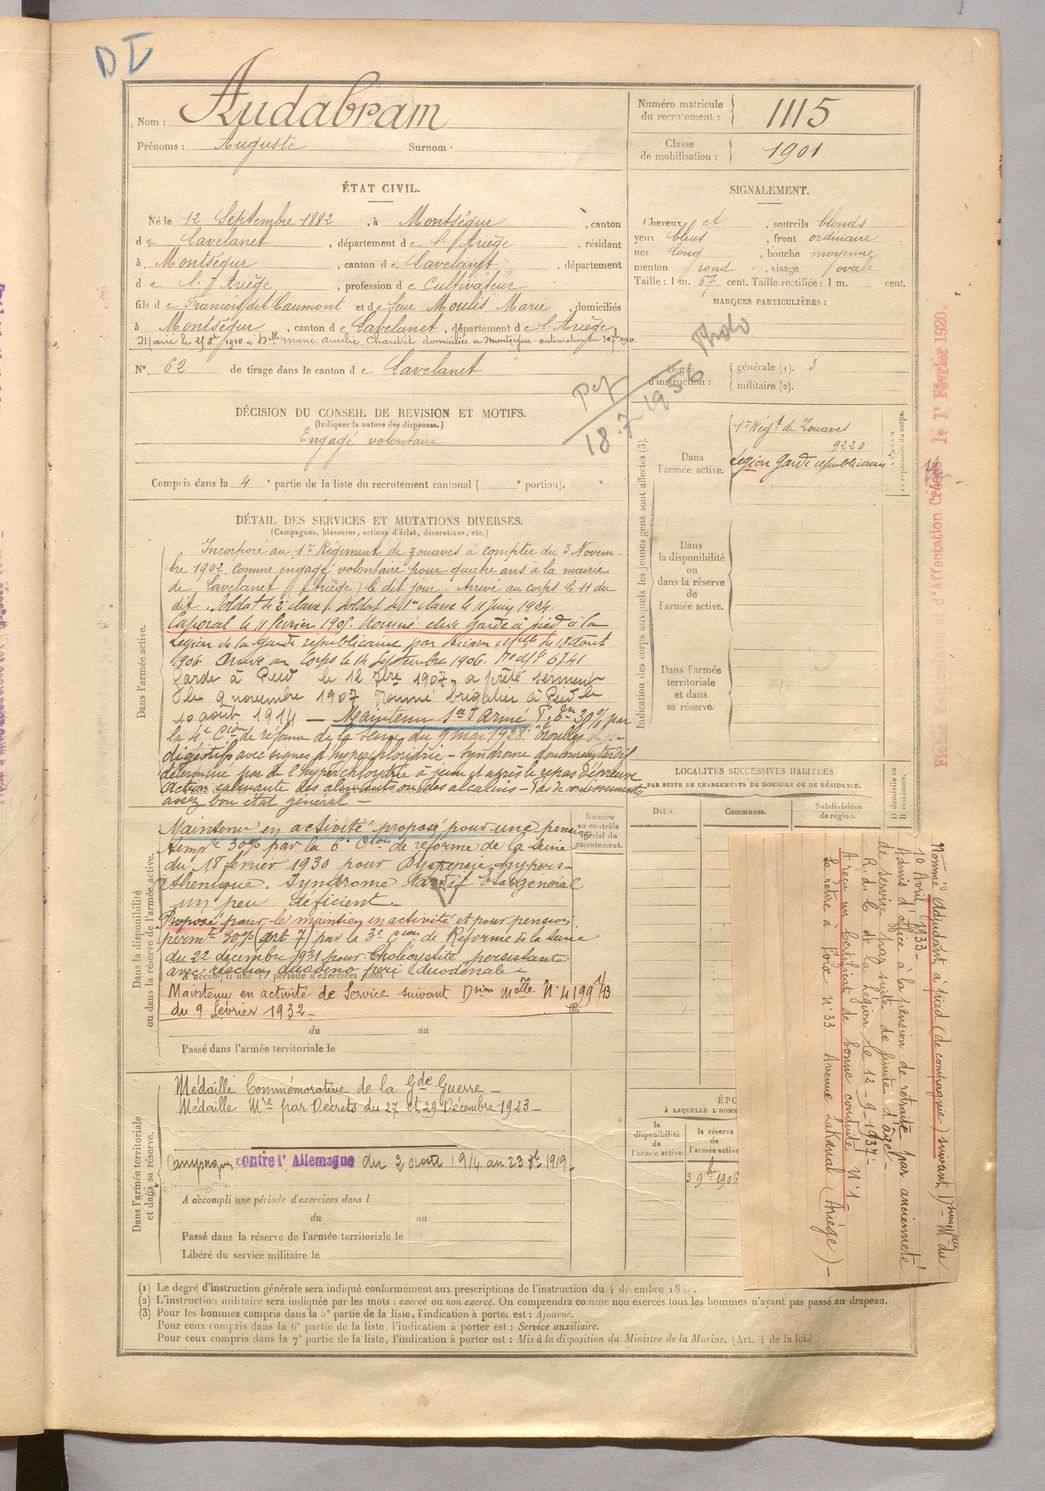 DI
Nom : Audabram
Prénoms : Auguste Surnom :
Numéro matricule du recrutement : 1115
Classe de mobilisation : 1901
ÉTAT CIVIL.
Né le 12 Septembre 1882, à Montségur, canton
de Lavelanet, département de l'Ariège, résidant
à Montségur, canton de Lavelanet, département
de l'Ariège, profession de Cultivateur
fils de François dit Caumont et de feue Moulis Marie, domiciliés
à Montségur, canton de Lavelanet, département de l'Ariège,
Marié le 1910 à Dlle Marie Amélie domiciliée à Montségur autorisation du
N° 62 de tirage dans le canton de Lavelanet
SIGNALEMENT.
Cheveux et, sourcils blonds
yeux bleus, front ordinaire
nez long, bouche moyenne
menton rond, visage ovale
Taille : 1 m. 67 cent. Taille rectifiée : 1 m. cent.
MARQUES PARTICULIÈRES :
Degré d'instruction : générale (1). 3
militaire (2).
Photo
18-7-1936
DÉCISION DU CONSEIL DE REVISION ET MOTIFS.
(Indiquer la nature des dispenses.)
Engagé volontaire
Compris dans la 4e partie de la liste du recrutement cantonal ( portion).
Indication des corps auxquels les jeunes gens sont affectés (3).
Dans l'armée active.
1er Régt de Zouaves
9220
Légion Garde républicaine
Dans la disponibilité ou dans la réserve de l'armée active.
Dans l'armée territoriale et dans sa réserve.
d'Affectation Créées le 1er Février 1920.
DÉTAIL DES SERVICES ET MUTATIONS DIVERSES.
(Campagnes, blessures, actions d'éclat, décorations, etc.)
Dans l'armée active.
Incorporé au 1er Régiment de zouaves à compter du 3 Novem-
bre 1902, comme engagé volontaire pour quatre ans à la mairie
de Lavelanet (Ariège) le dit jour. Arrivé au corps le 11 du
dit. Soldat de 2e classe. Soldat de 1re classe le 11 Juin 1904.
Caporal le 11 février 1905. Nommé élève Garde à pied à la
Légion de la Garde républicaine par décision melle du 18 août
1906 Arrivé au Corps le 14 Septembre 1906. No Mle 6741
Garde à Pied le 12 7bre 1907, a prêté serment
le 9 novembre 1907 Nommé brigadier à Pied le
10 août 1914 — Maintenu Son d'Armé Pon 30% par
la 4e Cion de réforme de la Seine du 9 mai 1928. Troubles
digestifs avec signes d'hyperchlorhydrie — Syndrome douloureux tardif
déterminé par de l'hyperchlorhydrie à jeun et après le repas d'épreuve
Action calmante des aliments ou des alcalins — Pas de vomissements
assez bon état général —
Dans la disponibilité ou dans la réserve de l'armée active.
Maintenu en activité proposé pour une pension
tempre 30% par la 6e Cion de réforme de la Seine
du 18 février 1930 pour Dyspepsie hypers-
thénique. Syndrome tardif Etat général
un peu déficient —
Proposé pour le maintien en activité et pour pension
permte 30% (art 7) par la 3e Cion de Réforme de la Seine
du 22 décembre 1931 pour cholécystite persistante
avec réaction duodéno péri duodénale —
Maintenu en activité de Service suivant Dsion Melle N° 4199 1/13
du 9 février 1932 —
du au
Passé dans l'armée territoriale le
Numéro au contrôle spécial du recrutement.
Dans l'armée territoriale et dans sa réserve.
Médaille Commémorative de la Gde Guerre —
Médaille Mre par Décrets du 27 et 29 Décembre 1923 —
Campagnes contre l'Allemagne du 2 août 1914 au 23 8bre 1919.
A accompli une période d'exercices dans l
du au
Passé dans la réserve de l'armée territoriale le
Libéré du service militaire le
LOCALITÉS SUCCESSIVES HABITÉES
PAR SUITE DE CHANGEMENTS DE DOMICILE OU DE RÉSIDENCE.
Dates.
Communes.
Subdivisions de région.
D domicile ou R résidence.
Nommé Adjudant à pied (de compagnie) suivant Dsion Mle du
10 Avril 1933 —
Admis d'office à la pension de retraite par ancienneté
de service par suite de limite d'âge —
R. d. C. de la Légion le 12-9-1937 —
A reçu un Certificat de bonne conduite N° 1.
Se retire à Foix N° 33 Avenue Lakanal (Ariège) —
ÉPO
À LAQUELLE L'HOMM
la disponibilité de l'armée active.
la réserve de l'armée active.
3 9bre 1906
(1) Le degré d'instruction générale sera indiqué conformément aux prescriptions de l'instruction du 4 décembre 18
(2) L'instruction militaire sera indiquée par les mots : exercé ou non exercé. On comprendra comme non exercés tous les hommes n'ayant pas passé au drapeau.
(3) Pour les hommes compris dans la 5e partie de la liste, l'indication à porter est : Ajourné.
Pour ceux compris dans la 6e partie de la liste, l'indication à porter est : Service auxiliaire.
Pour ceux compris dans la 7e partie de la liste, l'indication à porter est : Mis à la disposition du Ministre de la Marine. (Art. 4 de la loi.)